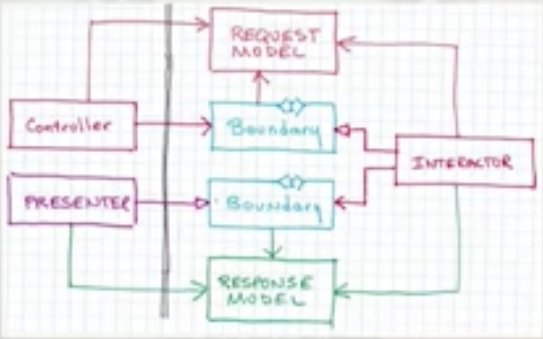 REQUEST
MODEL
Controller
<I>
Boundary
INTERACTOR
PRESENTER
<I>
Boundary
RESPONSE
MODEL